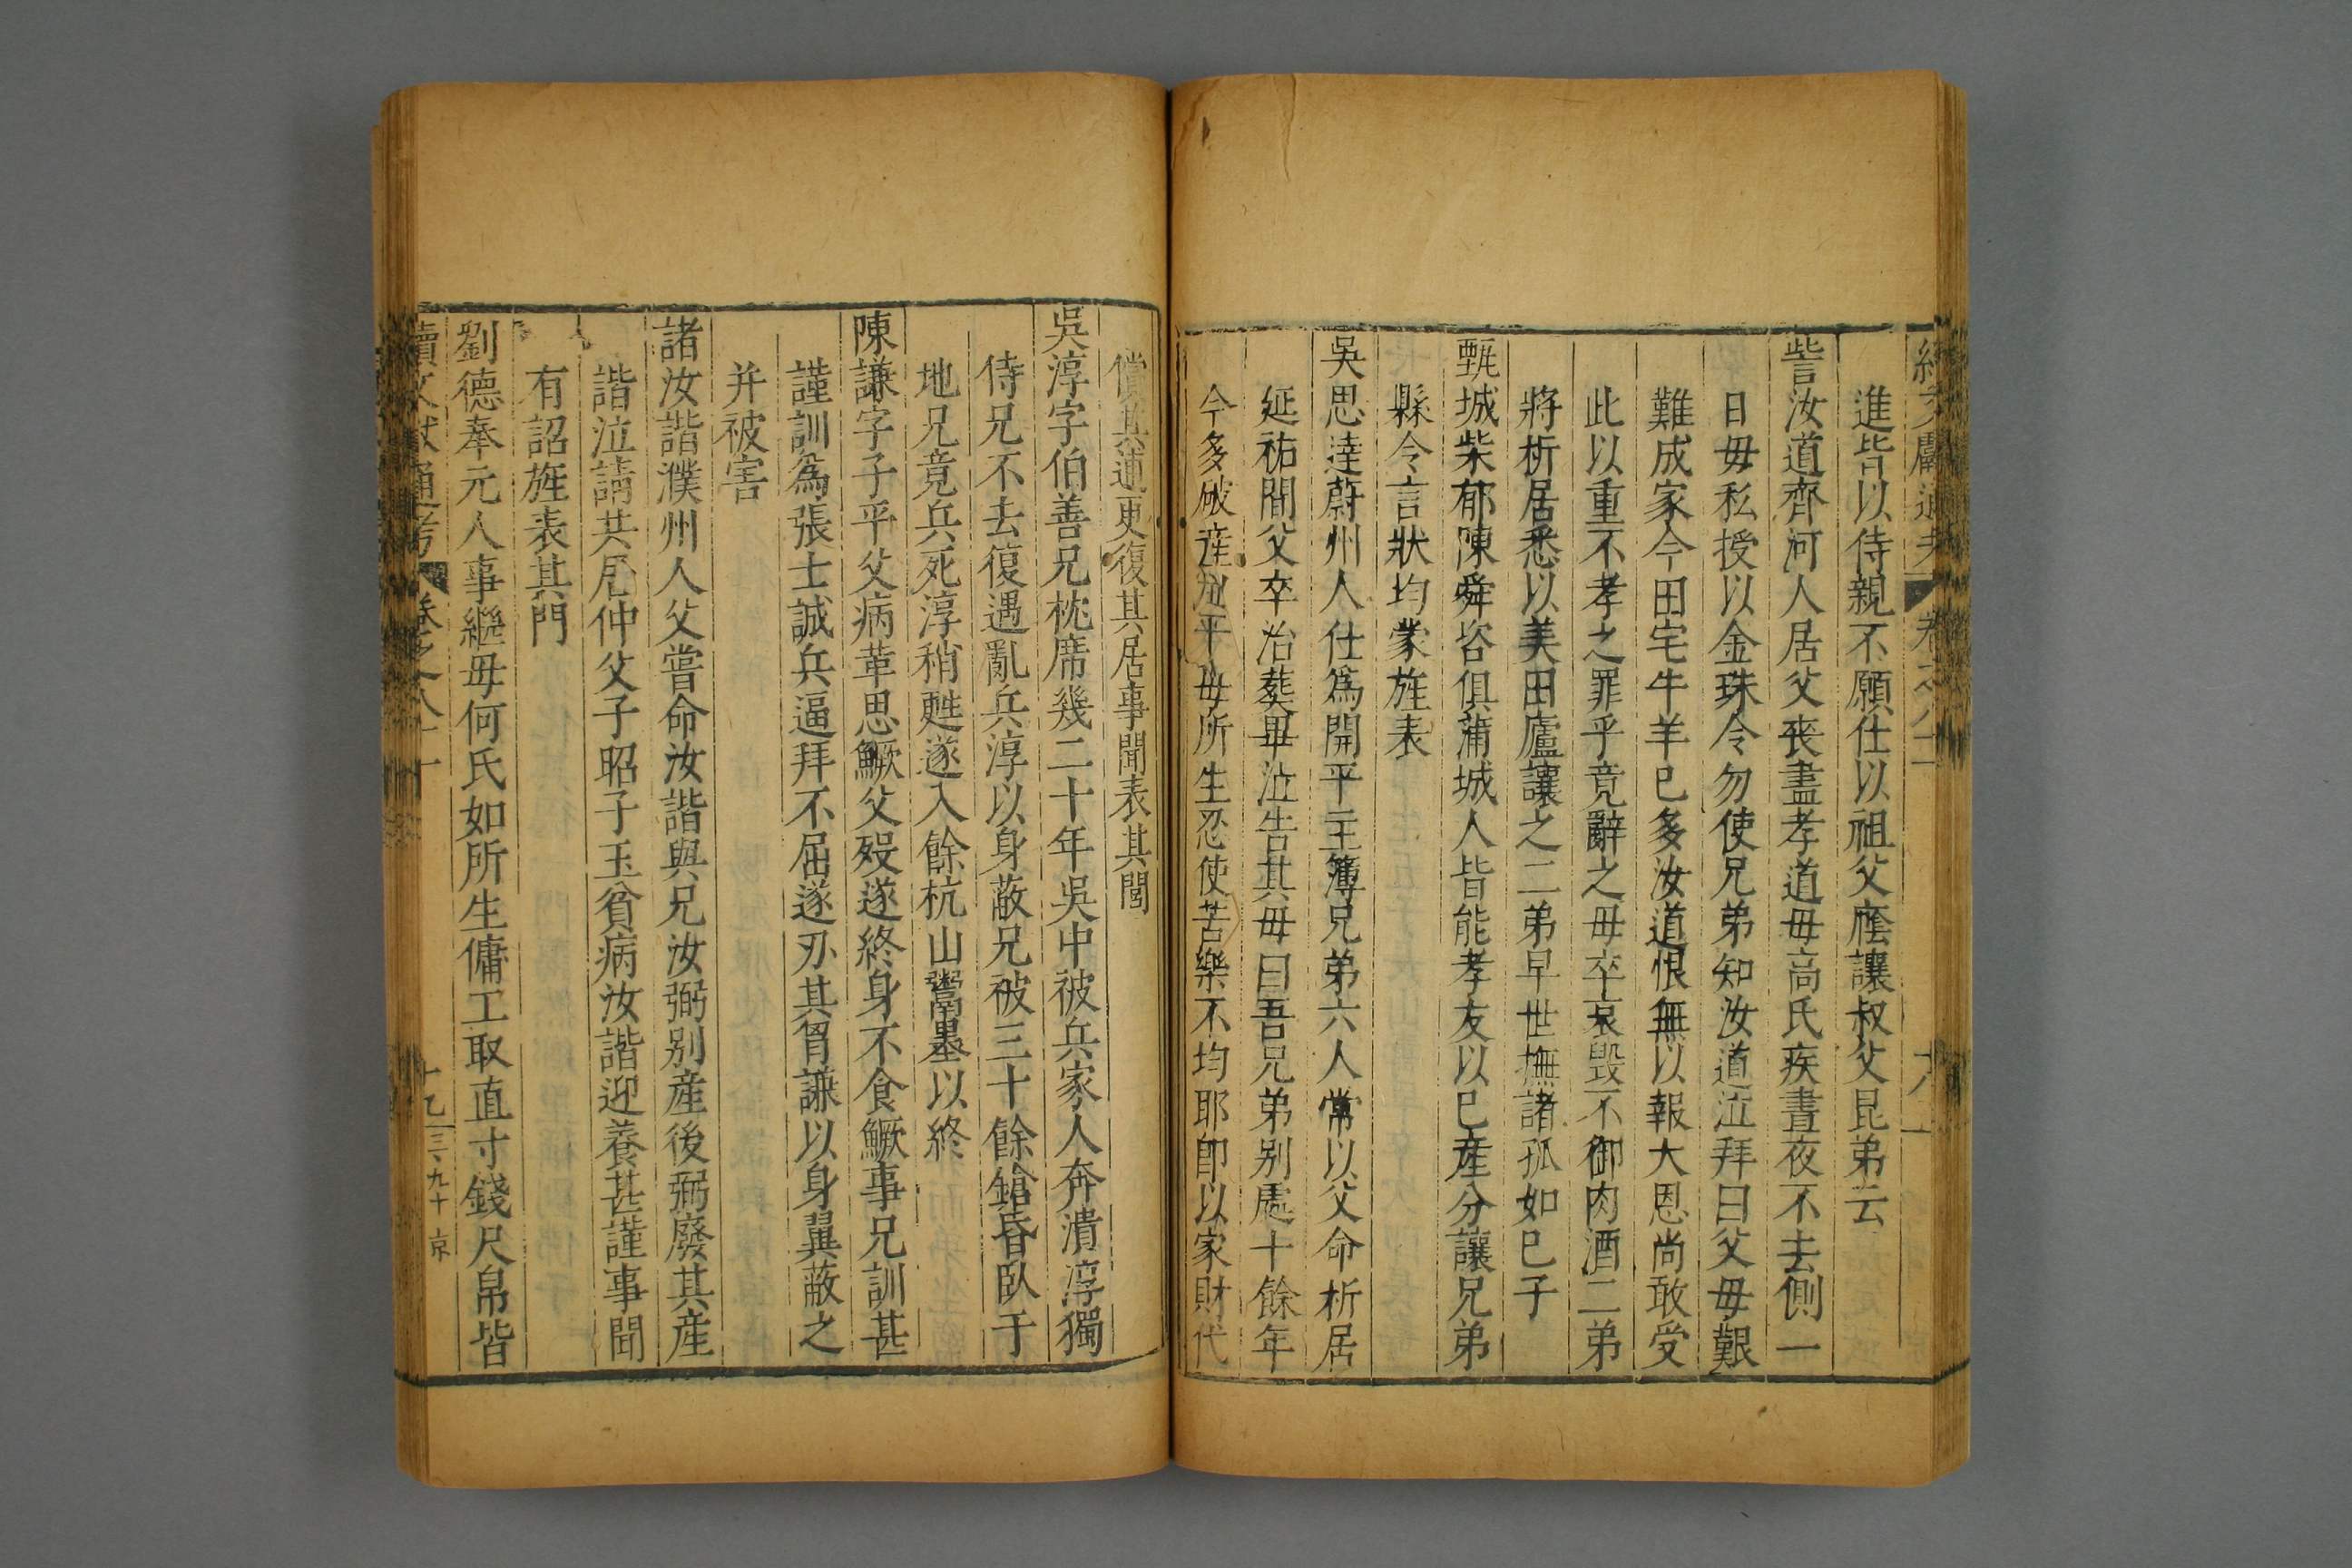 續文獻通考 卷之八十一
進皆以侍親不願仕以祖父廕讓叔父昆弟云
訾汝道齊河人居父喪盡孝道毋高氏疾晝夜不去側一
日毋私授以金珠令勿使兄弟知汝道泣拜曰父毋艱
難成家今田宅牛羊已多汝道恨無以報大恩尚敢受
此以重不孝之罪乎竟辭之毋卒哀毀不御肉酒二弟
將析居悉以美田廬讓之二弟早世撫諸孤如巳子
甄城柴郁陳舜咨俱蒲城人皆能孝友以巳產分讓兄弟
縣令言狀均蒙旌表
吳思達蔚州人仕爲開平主簿兄弟六人常以父命析居
延祐間父卒治葬畢泣告其毋曰吾兄弟别處十餘年
今多破產 平毋所生忍使苦樂不均耶卽以家財代
償其逋更復其居事聞表其閭
吳淳字伯善兄枕席幾二十年吳中被兵家人奔潰淳獨
侍兄不去復遇亂兵淳以身蔽兄被三十餘鎗昏臥于
地兄竟兵死淳稍甦遂入餘杭山鬻墨以終
陳謙字子平父病革思鱖父歿遂終身不食鱖事兄訓甚
謹訓爲張士誠兵逼拜不屈遂刃其胷謙以身翼蔽之
并被害
諸汝諧濮州人父嘗命汝諧與兄汝弼别產後弼廢其產
諧泣請共居仲父子昭子玉貧病汝諧迎養甚謹事聞
有詔旌表其門
劉德奉元人事繼毋何氏如所生傭工取直寸錢尺帛皆
續文獻通考 卷之八十一 三九十 京